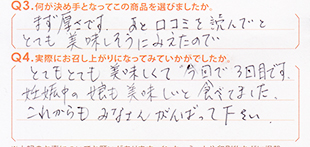 Q3.何が決め手となってこの商品を選びましたか。
まず厚さです。あと口コミを読んでと
とても美味しそうにみえたので
Q4.実際にお召し上がりになってみていかがでしたか。
とてもとても美味しくて今回で3回目です。
妊娠中の娘も美味しいと食べてました。
これからもみなさんがんばって下さい